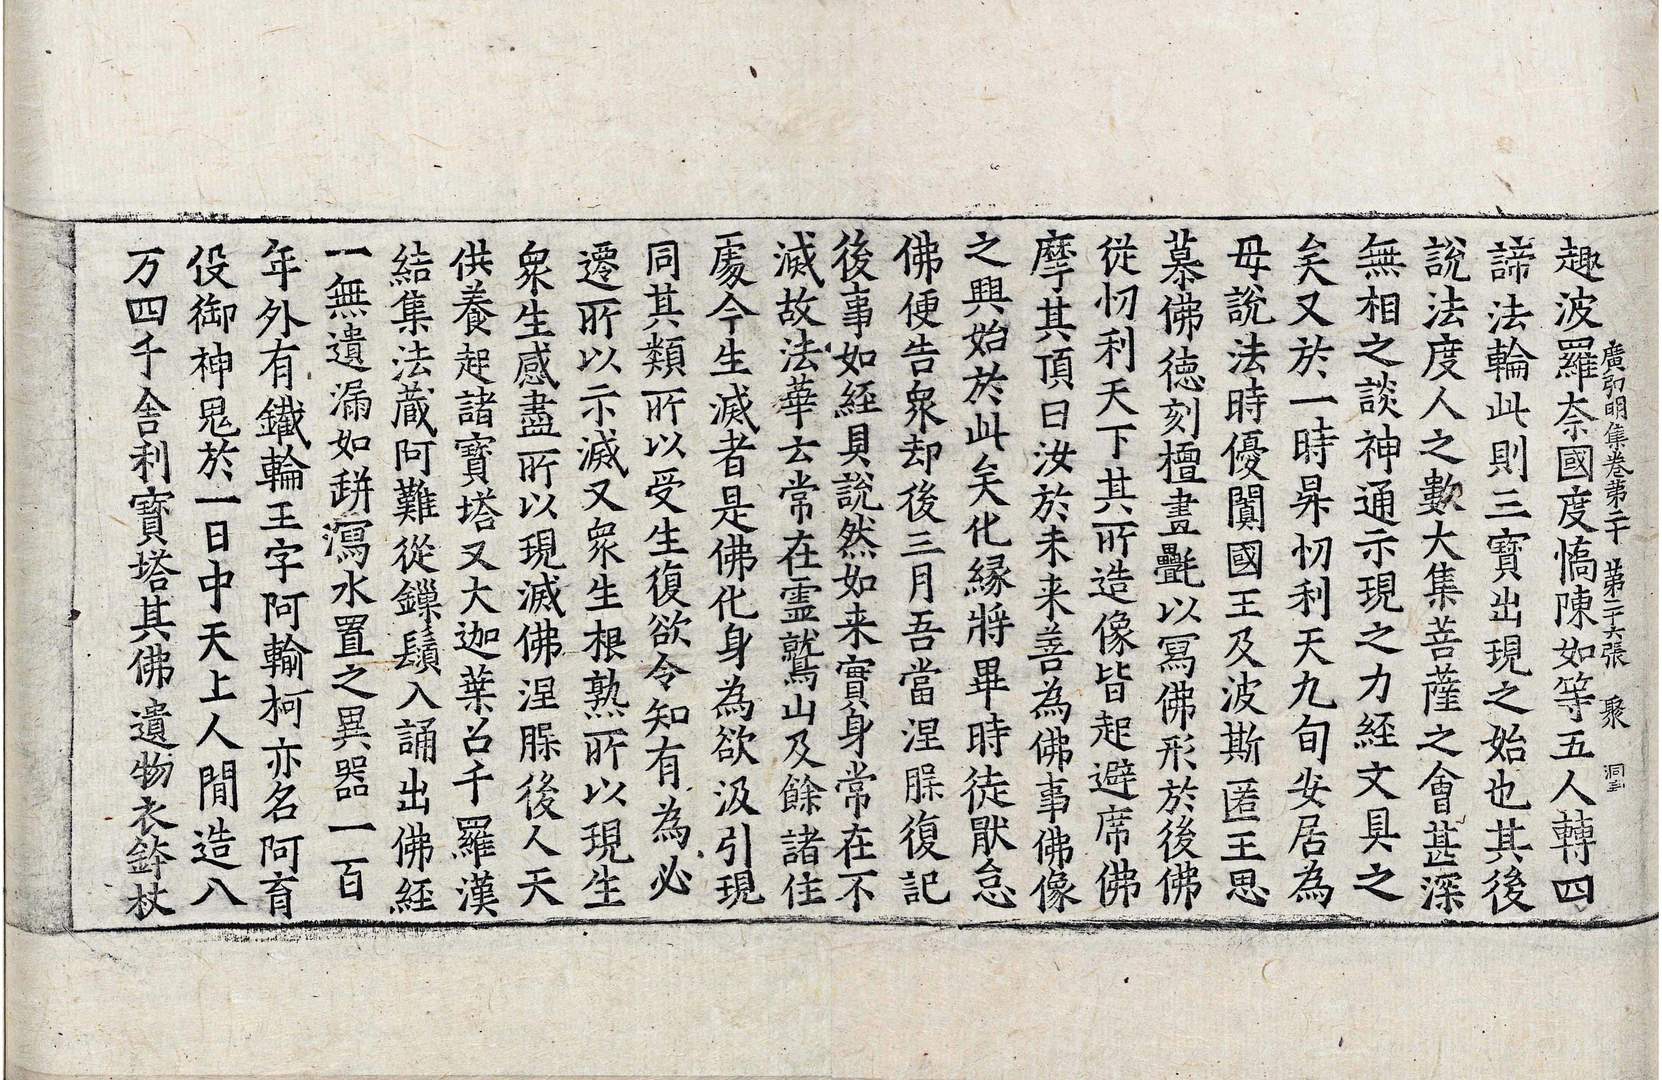 廣弘明集卷第二十 第二十六張 聚
趣波羅奈國度憍陳如等五人轉四
諦法輪此則三寶出現之始也其後
說法度人之數大集菩薩之會甚深
無相之談神通示現之力經文具之
矣又於一時昇忉利天九旬安居為
母說法時優闐國王及波斯匿王思
慕佛德刻檀畫氎以寫佛形於後佛
從忉利天下其所造像皆起避席佛
摩其頂曰汝於未来善為佛事佛像
之興始於此矣化緣將畢時徒猒怠
佛便告衆却後三月吾當涅槃復記
後事如經具說然如来實身常在不
滅故法華云常在靈鷲山及餘諸住
處今生滅者是佛化身為欲汲引現
同其類所以受生復欲令知有為必
遷所以示滅又衆生根熟所以現生
衆生感盡所以現滅佛涅槃後人天
供養起諸寶塔又大迦葉召千羅漢
結集法藏阿難從鏁鬚入誦出佛經
一無遺漏如瓶瀉水置之異器一百
年外有鐵輪王字阿輸柯亦名阿育
役御神鬼於一日中天上人間造八
万四千舍利寶塔其佛遺物衣鉢杖